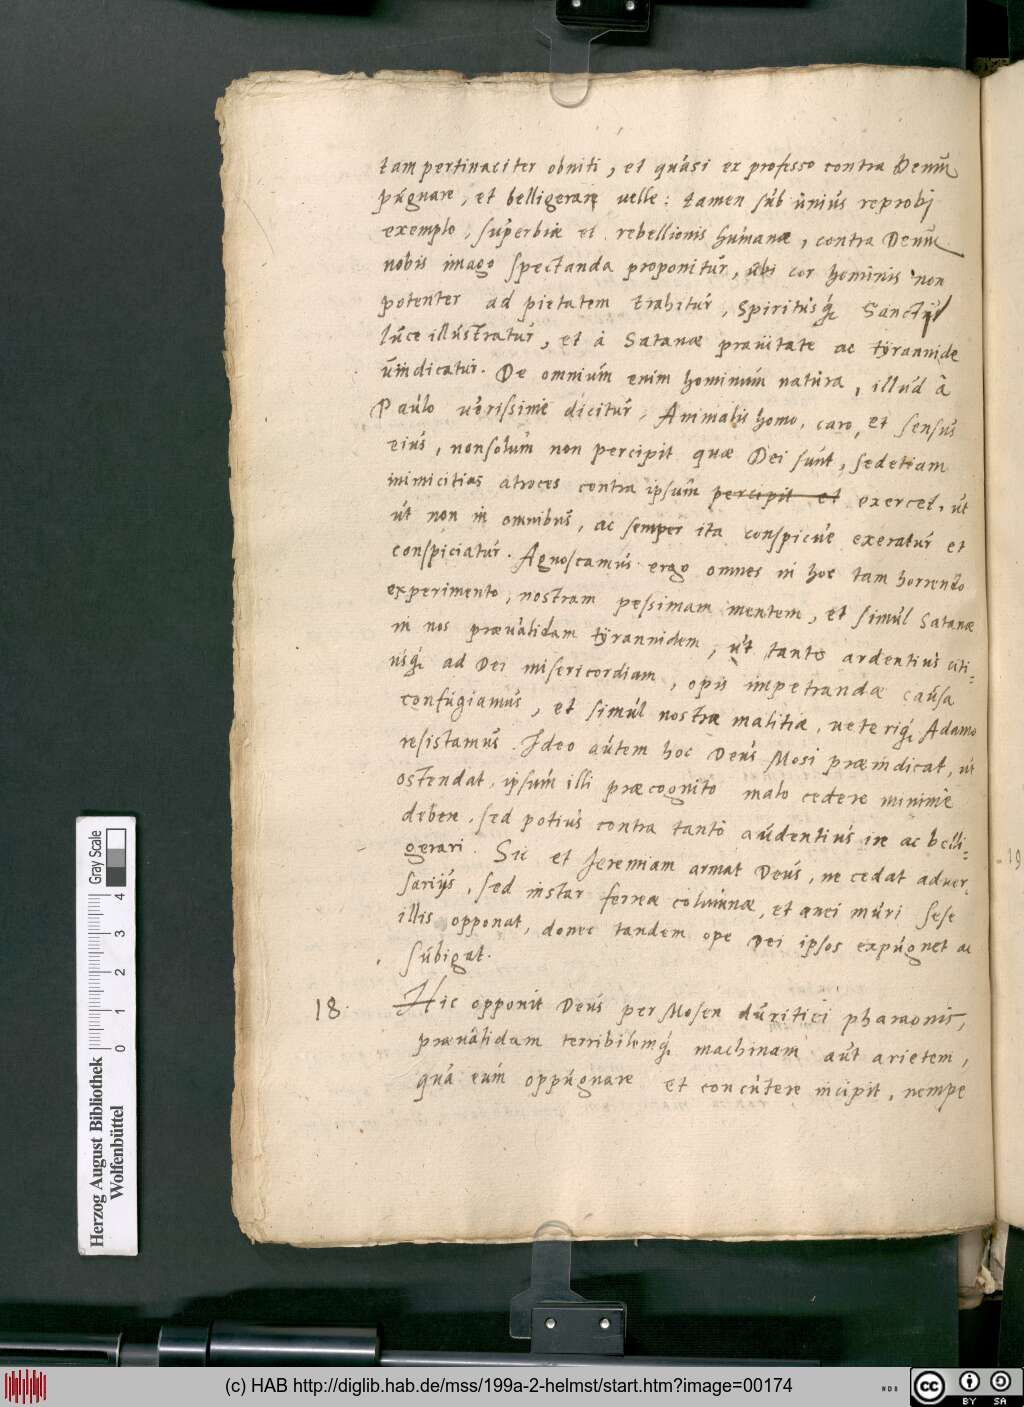 tam pertinaciter obniti, et quasi ex professo contra Deum
pugnare, et belligerare uelle: tamen sub unius reprobi
exemplo, superbiæ et rebellionis humanæ, contra Deum
nobis imago spectanda proponitur, ubi cor hominis non
potenter ad pietatem trahitur, Spiritusq; Sancti
luce illustratur, et à Satanæ prauitate ac tyrannide
uindicatur. De omnium enim hominum natura, illud à
Paulo uerissime dicitur, Animalis homo, caro, et sensus
eius, nonsolum non percipit quæ Dei sunt, sedetiam
inimicitias atroces contra ipsum percipit et exercet, ut
ut non in omnibus, ac semper ita conspicue exeratur et
conspiciatur. Agnoscamus ergo omnes in hoc tam horrendo
experimento, nostram pessimam mentem, et simul Satanæ
in nos præualidam tyrannidem, ut tanto ardentius citi=
usq; ad Dei misericordiam, opis impetrandæ causa
confugiamus, et simul nostræ malitiæ, ueteriq; Adamo
resistamus. Ideo autem hoc Deus Mosi præindicat, ut
ostendat, ipsum illi præcognito malo cedere minime
deben, sed potius contra tanto audentius ire ac belli=
gerari. Sic et Jeremiam armat Deus, ne cedat aduer=
sariis, sed instar ferreæ columnæ, et ænei muri sese
illis opponat, donec tandem ope Dei ipsos expugnet ac
subigat.
18. Hic opponit Deus per Mosen duritiei pharaonis,
præualidam terribilemq; machinam aut arietem,
qua eum oppugnare et concutere incipit, nempe
19
Gray Scale
0 1 2 3 4
Herzog August Bibliothek
Wolfenbüttel
(c) HAB http://diglib.hab.de/mss/199a-2-helmst/start.htm?image=00174
cc BY SA